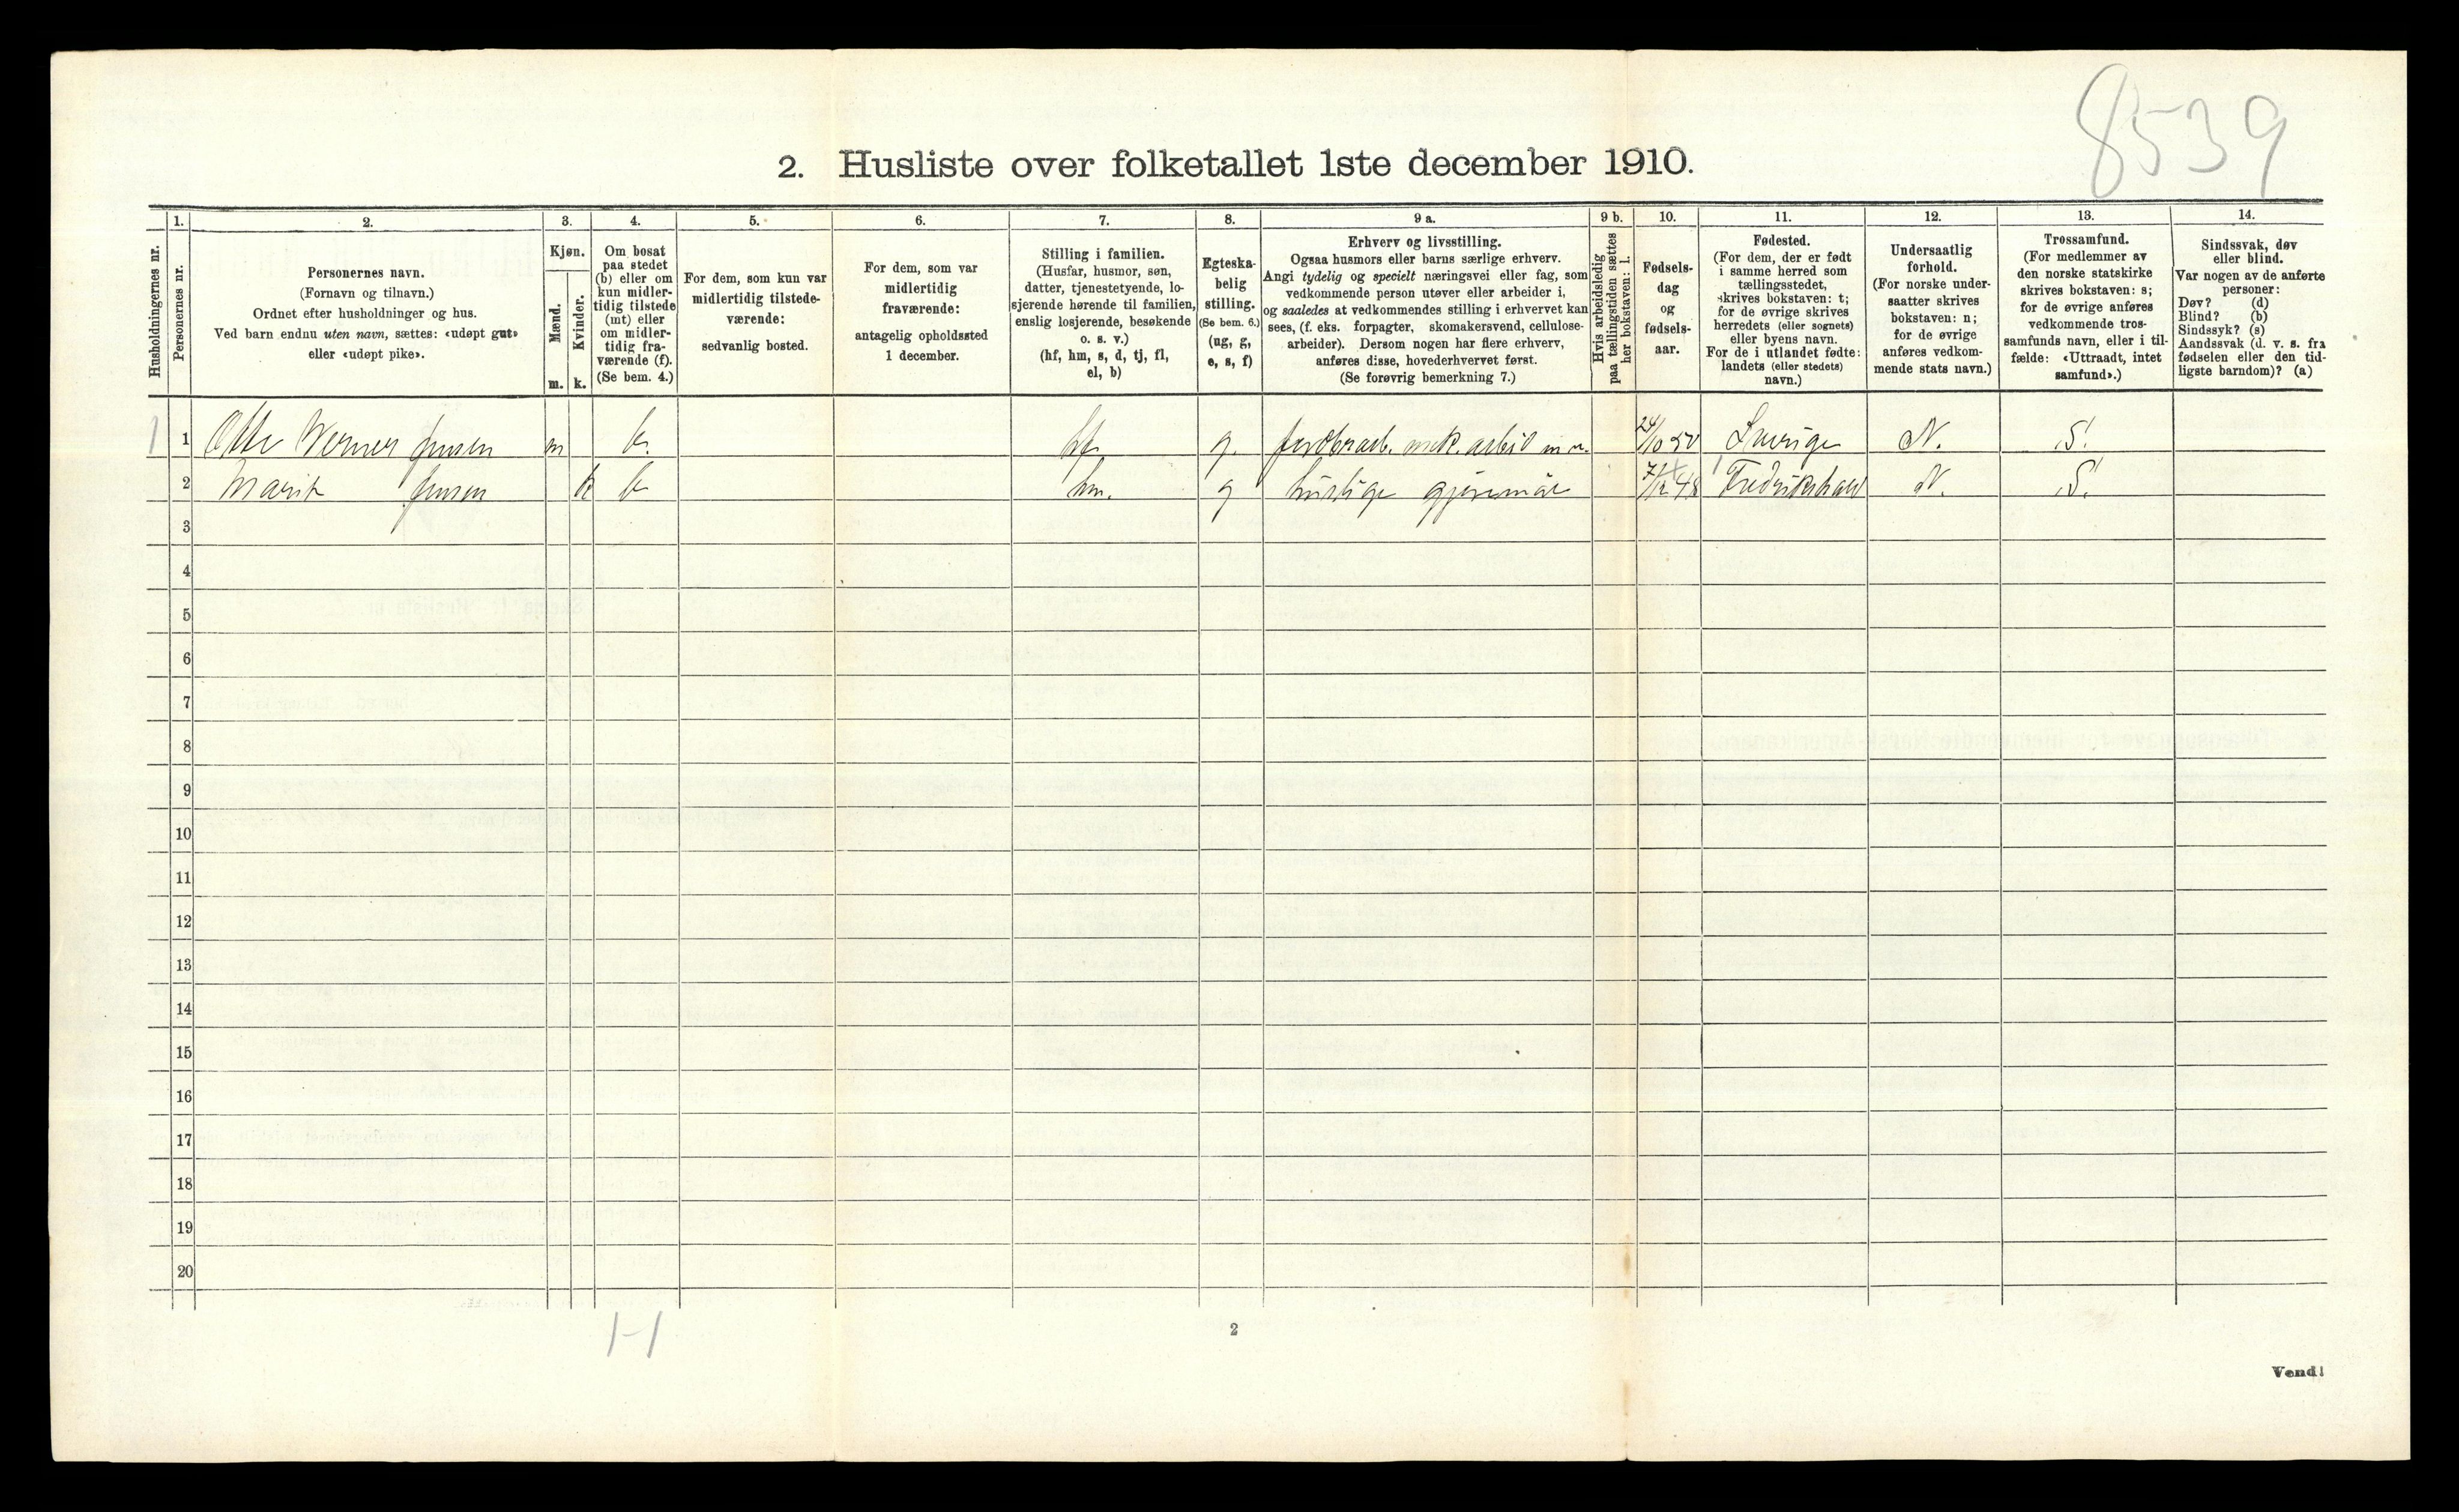 8539
2. Husliste over folketallet 1ste december 1910.
Husholdningernes nr.
1.
Personernes nr.
2.
Personernes navn.
(Fornavn og tilnavn.)
Ordnet efter husholdninger og hus.
Ved barn endnu uten navn, sættes: «udøpt gut»
eller «udøpt pike».
3.
Kjøn.
Mænd.
Kvinder.
m. k.
4.
Om bosat
paa stedet
(b) eller om
kun midler-
tidig tilstede
(mt) eller
om midler-
tidig fra-
værende (f).
(Se bem. 4.)
5.
For dem, som kun var
midlertidig tilstede-
værende:
sedvanlig bosted.
6.
For dem, som var
midlertidig
fraværende:
antagelig opholdssted
1 december.
7.
Stilling i familien.
(Husfar, husmor, søn,
datter, tjenestetyende, lo-
sjerende hørende til familien,
enslig losjerende, besøkende
o. s. v.)
(hf, hm, s, d, tj, fl,
el, b)
8.
Egteska-
belig
stilling.
(Se bem. 6.)
(ug, g,
e, s, f)
9 a.
Erhverv og livsstilling.
Ogsaa husmors eller barns særlige erhverv.
Angi tydelig og specielt næringsvei eller fag, som
vedkommende person utøver eller arbeider i,
og saaledes at vedkommendes stilling i erhvervet kan
sees, (f. eks. forpagter, skomakersvend, cellulose-
arbeider). Dersom nogen har flere erhverv,
anføres disse, hovederhvervet først.
(Se forøvrig bemerkning 7.)
9 b.
Hvis arbeidsledig
paa tællingstiden sættes
her bokstaven: l.
10.
Fødsels-
dag
og
fødsels-
aar.
11.
Fødested.
(For dem, der er født
i samme herred som
tællingsstedet,
skrives bokstaven: t;
for de øvrige skrives
herredets (eller sognets)
eller byens navn.
For de i utlandet fødte:
landets (eller stedets)
navn.)
12.
Undersaatlig
forhold.
(For norske under-
saatter skrives
bokstaven: n;
for de øvrige
anføres vedkom-
mende stats navn.)
13.
Trossamfund.
(For medlemmer av
den norske statskirke
skrives bokstaven: s;
for de øvrige anføres
vedkommende tros-
samfunds navn, eller i til-
fælde: «Uttraadt, intet
samfund».)
14.
Sindssvak, døv
eller blind.
Var nogen av de anførte
personer:
Døv? (d)
Blind? (b)
Sindssyk? (s)
Aandssvak (d. v. s. fra
fødselen eller den tid-
ligste barndom)? (a)
1 1 Otto Werner Jensen m b. hf. g. jordbrarb. mek. arbeid m.v. 24/10 50 Sverige N. S.
2 Marie Jensen k b hm. g huslige gjøremål 7/12 48 Fredrikshald N. S.
3
4
5
6
7
8
9
10
11
12
13
14
15
16
17
18
19
20
1-1
2
Vend!